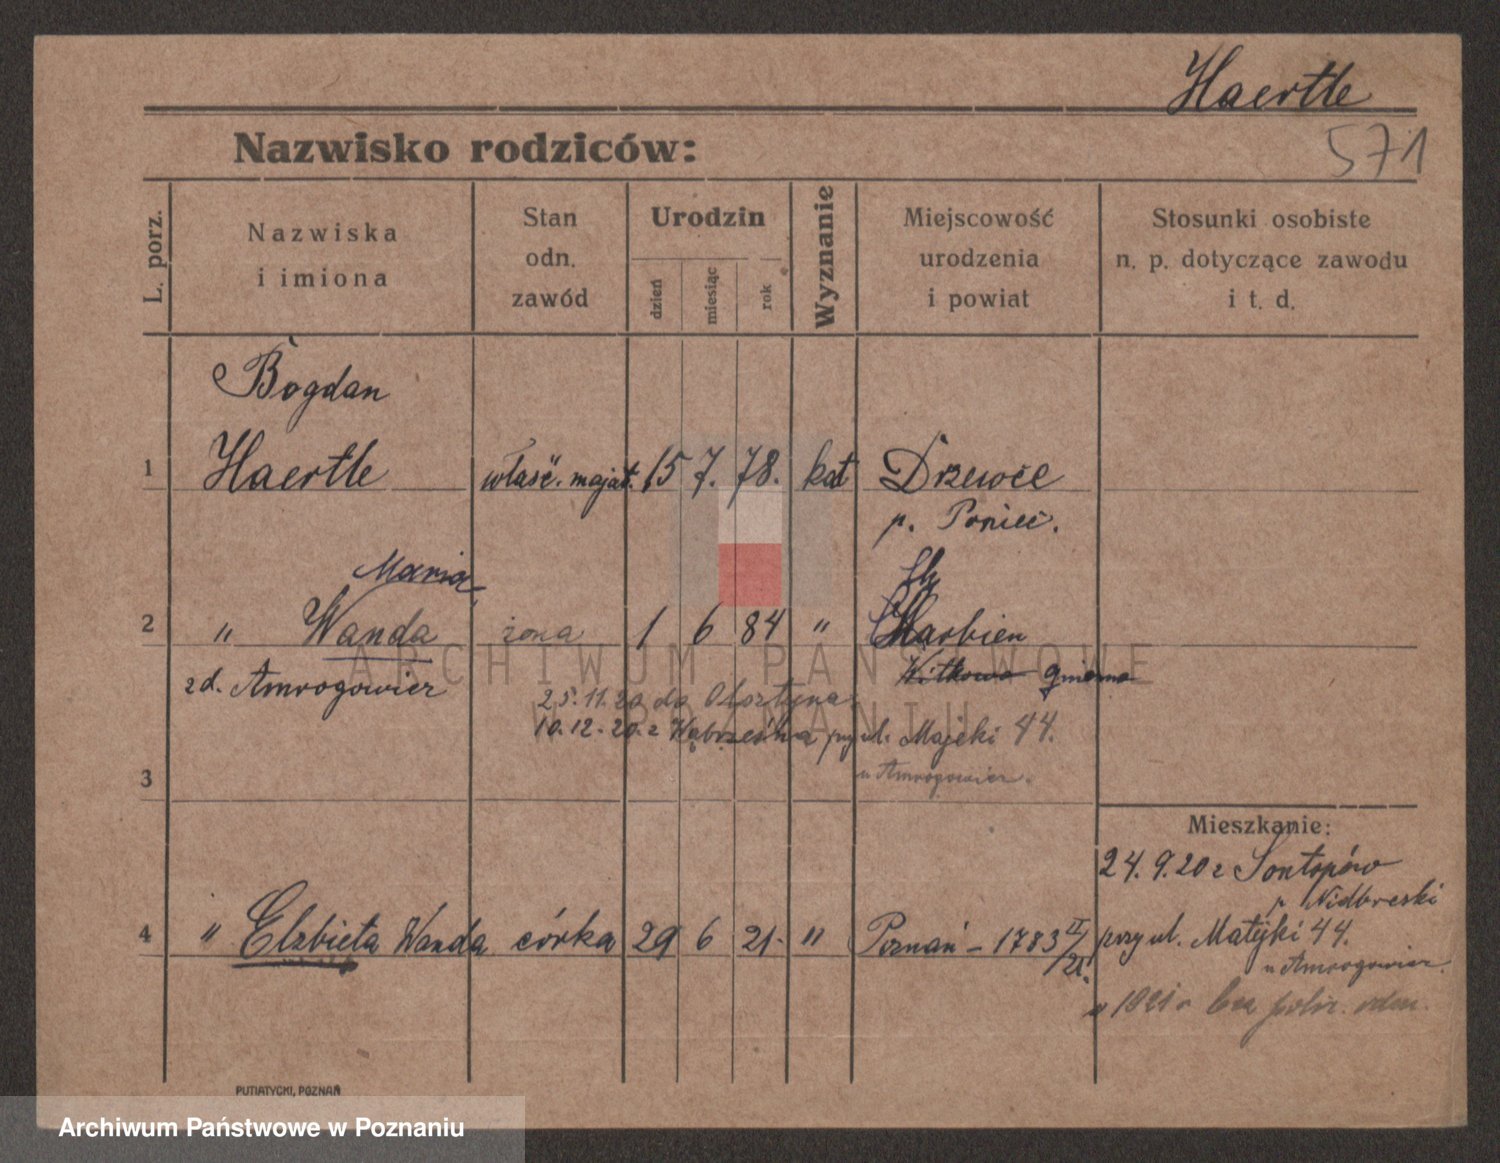 Haertle
Nazwisko rodziców:
571
L. porz.
Nazwiska
i imiona
Stan
odn.
zawód
Urodzin
dzień
miesiąc
rok
Wyznanie
Miejscowość
urodzenia
i powiat
Stosunki osobiste
n. p. dotyczące zawodu
i t. d.
Bogdan
1 Haertle właść. majat. 15 7. 78. kat Drzewce
p. Poniec.
Maria
2 " Wanda żona 1 6 84 " Charbien
zd. Amrogowicz Witkowo gniezno
25.11.20 do Olsztyna
10.12.20. z Wąbrzeźna przy ul. Matejki 44.
u Amrogowicz.
3
Mieszkanie:
24.9.20 z Sontopów
p. Nidbreski
4 " Elzbieta Wanda córka 29 6 21. " Poznań – 1783 II/21. przy ul. Matejki 44.
u Amrogowicz.
1921 r bez
PUTIATYCKI, POZNAŃ
ARCHIWUM PAŃSTWOWE
W POZNANIU
Archiwum Państwowe w Poznaniu